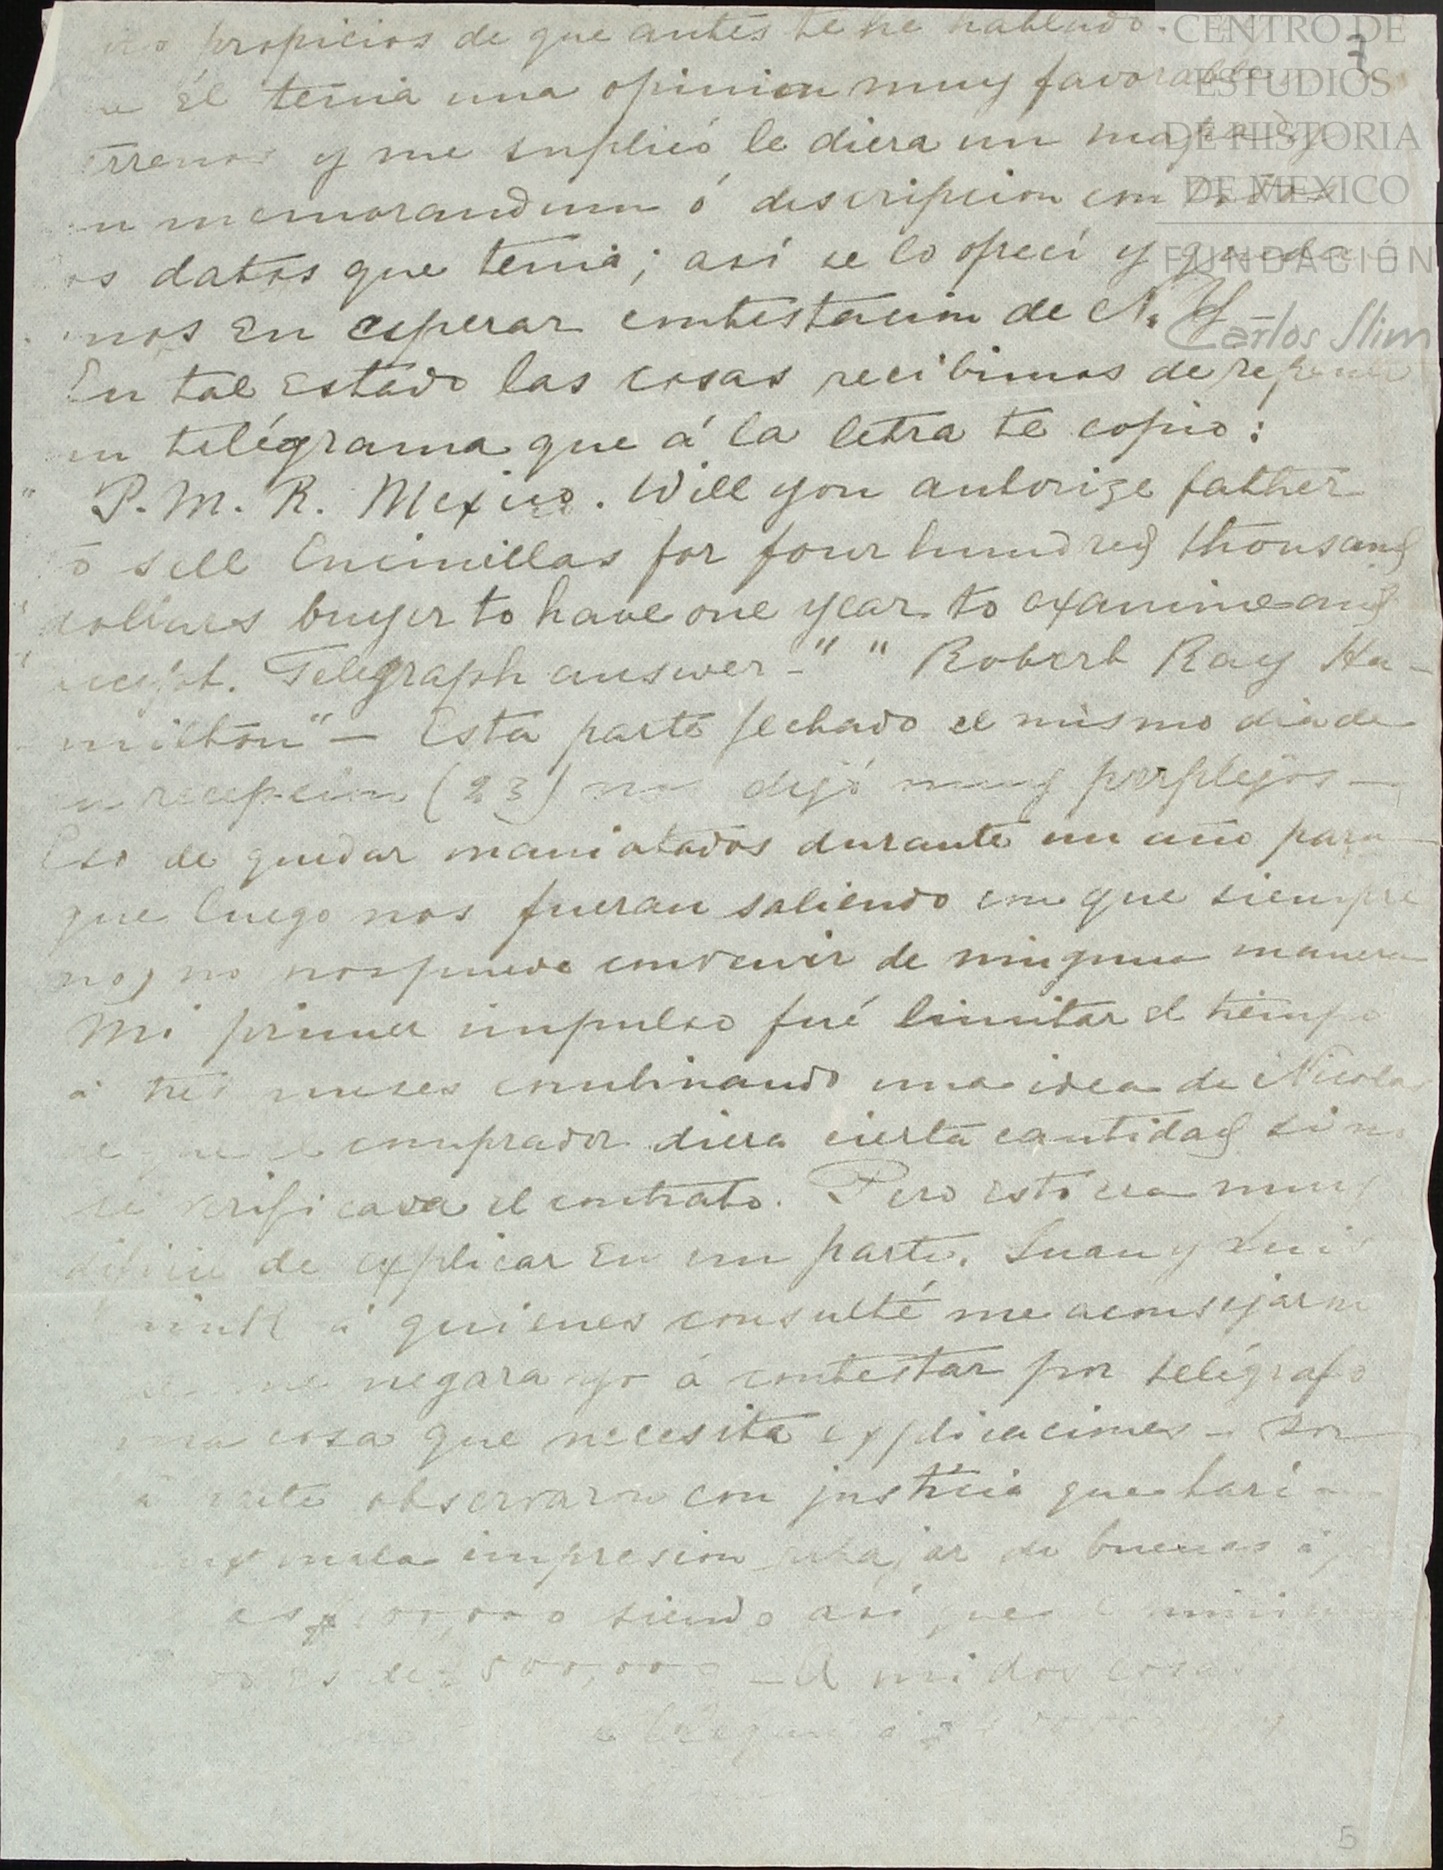 propicios de que antes te he hablado.
7
Él tenia una opinion muy favorable
y me suplicó le diera un mapa y
un memorandum ó discripcion con todos
os datos que tenia; así se lo ofrecí y queda-
mos en esperar contestacion de N. Y.
En tal estado las cosas recibimos de repente
un telégrama que á la letra te copio:
" P. M. R. Mexico. Will you autorize father
to sell Encinillas for four hundred thousand
dollars buyer to have one year to examine and
accept. Telegraph answer-" " Robert Ray Ha-
milton" - Esta parte fechado el mismo dia de
su recepcion (23) nos dejó muy perplejos -
Eso de quedar maniatados durante un año para
que luego nos fueran saliendo con que siempre
no, no nos puede convenir de ninguna manera
Mi primer impulso fué limitar el tiempo
á tres meses combinando una idea de Nicolas
de que el comprador diera cierta cantidad si no
se verificava el contrato. Pero esto era muy
dificil de explicar en un parte. Juan y Luis
á quienes consulté me aconsejaron
me negara yo á contestar por telégrafo
una cosa que necesita explicaciones -
parte observaron con justicia que haria
mala impresion rebajar de buenas á
siendo así que
de $500,000 - A mi dos cosas
CENTRO DE
ESTUDIOS
DE HISTORIA
DE MEXICO
FUNDACIÓN
Carlos Slim
5